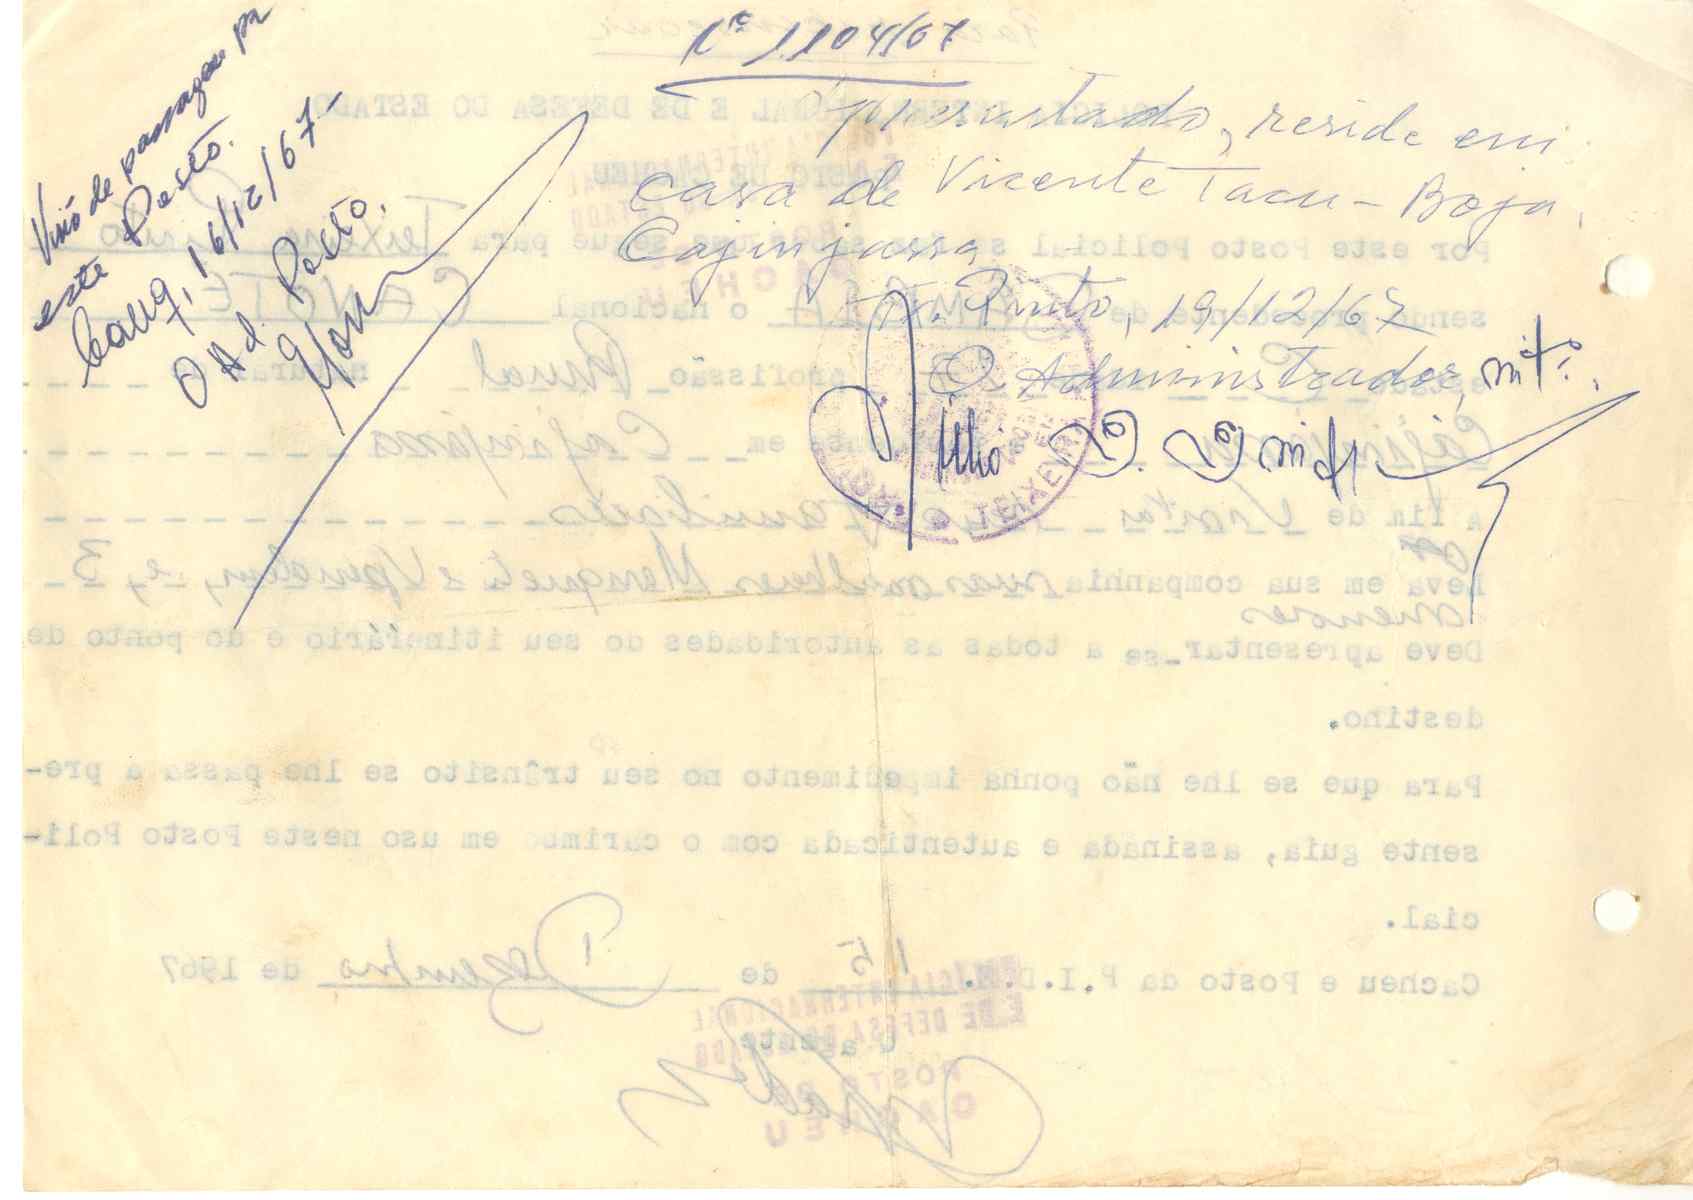 Nº 1104/67
Apresentado, reside em
casa de Vicente Tacu - Boja,
Cajinjassa
T. Pinto, 19/12/67
O Administrador, intº.
Visto de passagem pr
este Posto.
16/12/67
O Ad. Posto.
POLICIA INTERNACIONAL E DE DEFESA DO ESTADO
POSTO DE CACHEU
Por este Posto Policial se faz saber que segue para Teixeira Pinto
sendo procedente de o nacional CANOTE
profissão Rual natural
Cajinjassa em Cajinjassa
a fim de Visitar seus familiares
Leva em sua companhia suas mulheres Menquel e Upudem, e, 3
menores
Deve apresentar-se a todas as autoridades do seu itinerário e do ponto de
destino.
Para que se lhe não ponha impedimento no seu trânsito se lhe passa a pre-
sente guia, assinada e autenticada com o carimbo em uso neste Posto Poli-
cial.
Cacheu e Posto da P.I.D.E. 15 de Dezembro de 1967
O agente
POLICIA INTERNACIONAL
E DE DEFESA DO ESTADO
POSTO DE
CACHEU